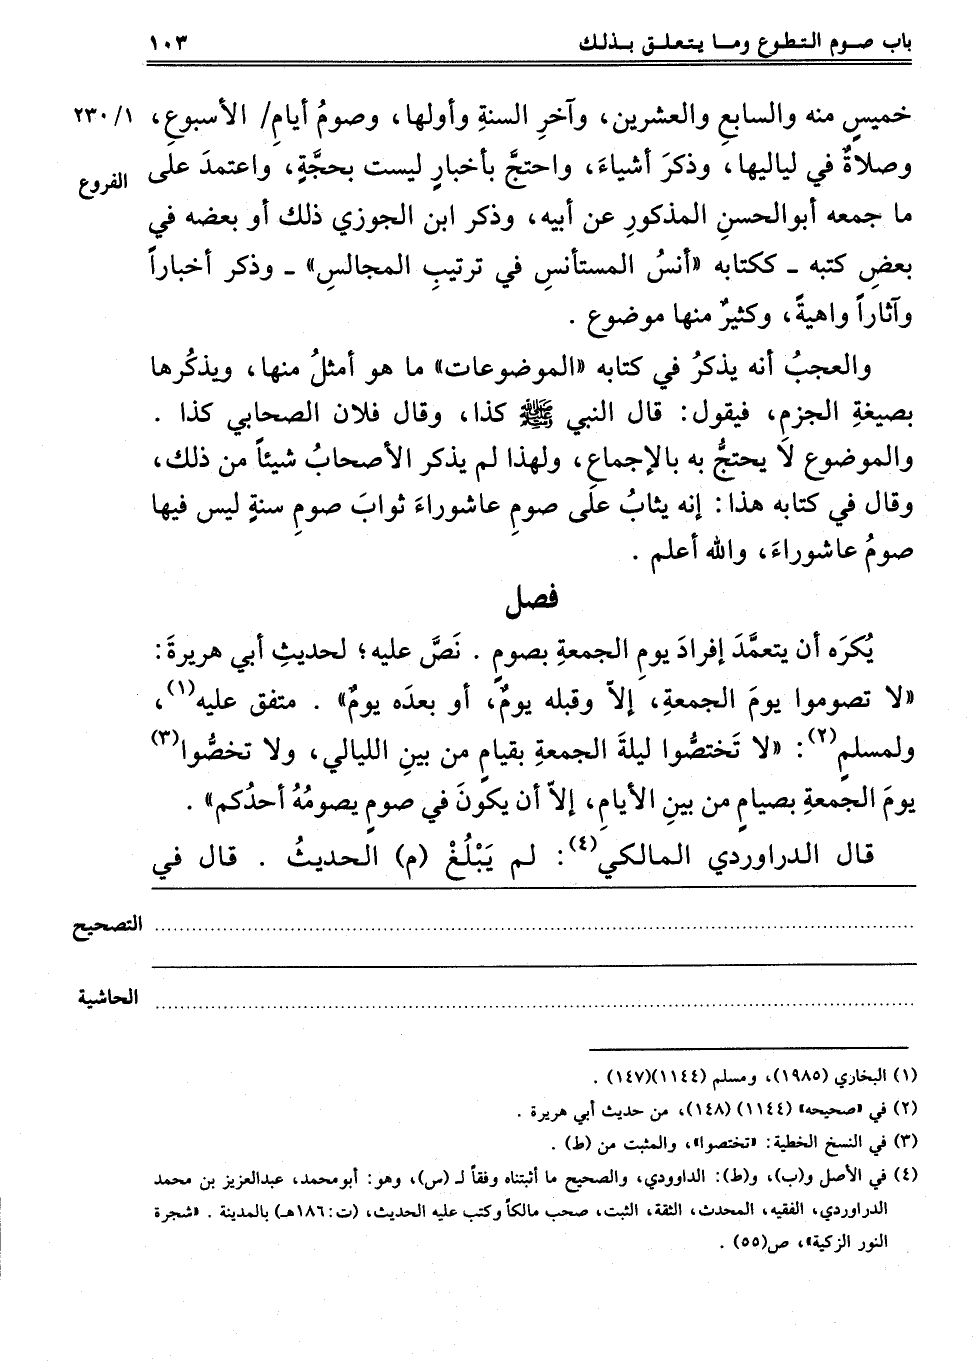 باب صوم التطوع وما يتعلق بذلك ١٠٣
خميسٍ منه والسابعِ والعشرين، وآخرِ السنةِ وأولها، وصومُ أيامِ/ الأسبوعِ، ٢٣٠/١
وصلاةٌ في لياليها، وذكرَ أشياءَ، واحتجَّ بأخبارٍ ليست بحجَّةٍ، واعتمدَ على الفروع
ما جمعه أبوالحسنِ المذكورِ عن أبيه، وذكر ابن الجوزي ذلك أو بعضه في
بعضِ كتبه ـ ككتابه «أنسُ المستأنسِ في ترتيبِ المجالسِ» ـ وذكر أخباراً
وآثاراً واهيةً، وكثيرٌ منها موضوع .
والعجبُ أنه يذكرُ في كتابه «الموضوعات» ما هو أمثلُ منها، ويذكُرها
بصيغةِ الجزمِ، فيقول: قال النبي ﷺ كذا، وقال فلان الصحابي كذا .
والموضوع لَا يحتجُّ به بالإجماعِ، ولهذا لم يذكر الأصحابُ شيئاً من ذلك،
وقال في كتابه هذا: إنه يثابُ علَى صومِ عاشوراءَ ثوابَ صومِ سنةٍ ليس فيها
صومُ عاشوراءَ، والله أعلم .
فصل
يُكرَه أن يتعمَّدَ إفرادَ يومِ الجمعةِ بصومٍ . نَصَّ عليه؛ لحديثِ أبي هريرةَ:
«لا تصوموا يومَ الجمعةِ، إلاّ وقبله يومٌ، أو بعدَه يومٌ» . متفق عليه(١)،
ولمسلمٍ(٢): «لا تَختصُّوا ليلةَ الجمعةِ بقيامٍ من بينِ الليالي، ولا تخصُّوا(٣)
يومَ الجمعةِ بصيامٍ من بينِ الأيامِ، إلاّ أن يكونَ في صومٍ يصومُهُ أحدُكم» .
قال الدراوردي المالكي(٤): لم يَبْلُغْ (م) الحديثُ . قال في
التصحيح
الحاشية
(١) البخاري (١٩٨٥)، ومسلم (١١٤٤)(١٤٧) .
(٢) في «صحيحه» (١١٤٤) (١٤٨)، من حديث أبي هريرة .
(٣) في النسخ الخطية: «تختصوا»، والمثبت من (ط) .
(٤) في الأصل و(ب)، و(ط): الداوودي، والصحيح ما أثبتناه وفقاً لـ (س)، وهو: أبومحمد، عبدالعزيز بن محمد
الدراوردي، الفقيه، المحدث، الثقة، الثبت، صحب مالكاً وكتب عليه الحديث، (ت:١٨٦هـ) بالمدينة . «شجرة
النور الزكية»، ص(٥٥) .